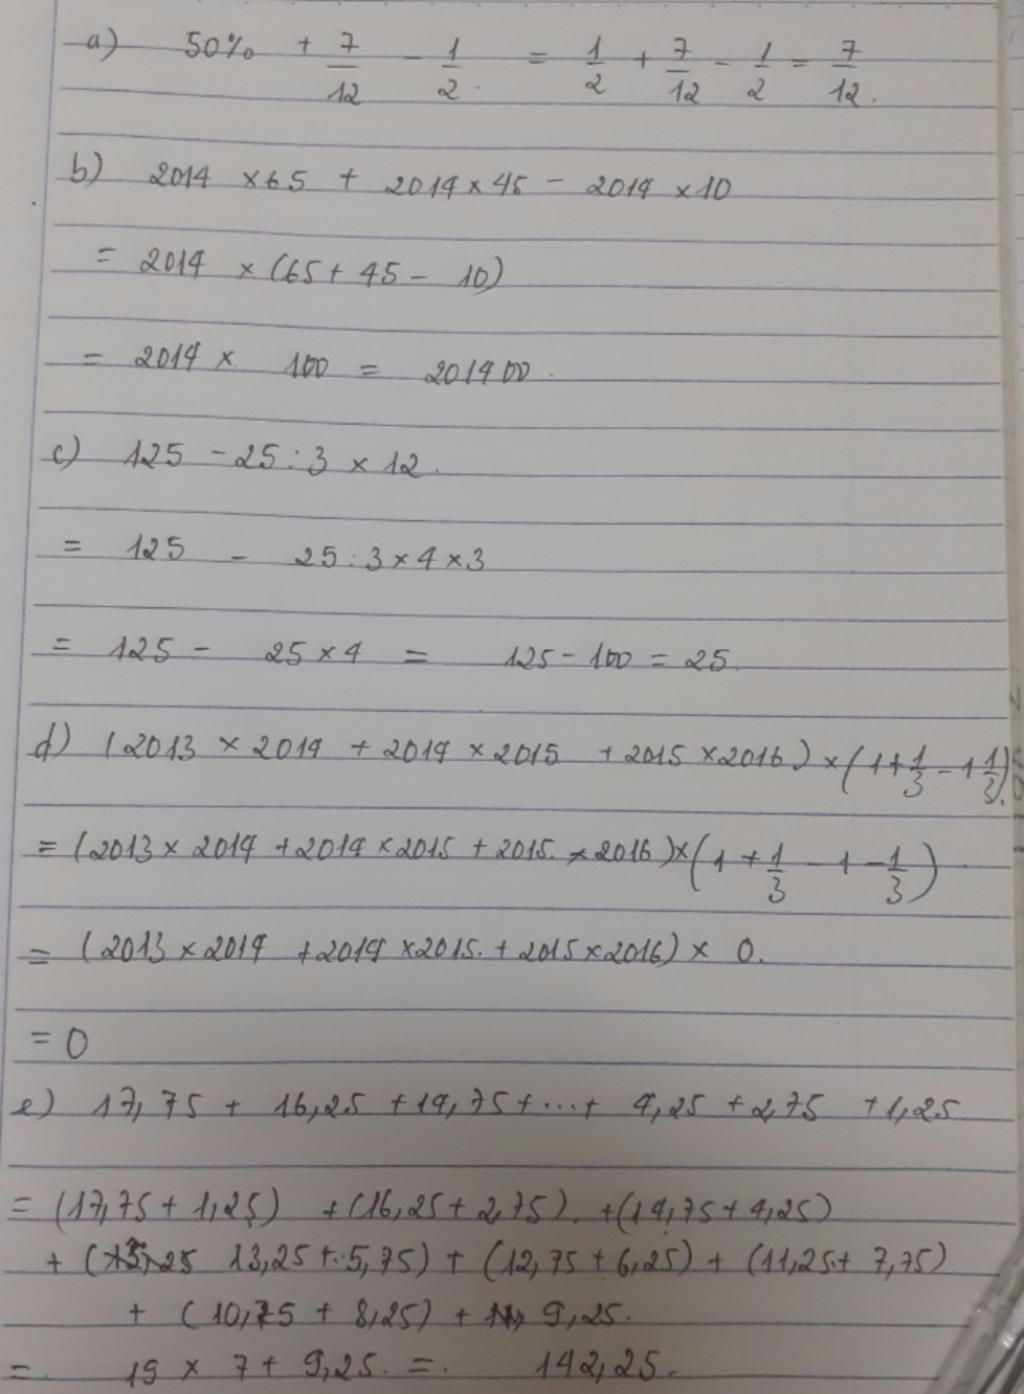 a) 50% + 7/12 - 1/2. = 1/2 + 7/12 - 1/2 = 7/12.
b) 2014 × 65 + 2014 × 45 - 2014 × 10
= 2014 × (65 + 45 - 10)
= 2014 × 100 = 201400.
c) 125 - 25 : 3 × 12.
= 125 - 25 : 3 × 4 × 3
= 125 - 25 × 4 = 125 - 100 = 25.
d) (2013 × 2014 + 2014 × 2015 + 2015 × 2016) × (1 + 1/3 - 1 1/3).
= (2013 × 2014 + 2014 × 2015 + 2015 × 2016) × (1 + 1/3 - 1 - 1/3)
= (2013 × 2014 + 2014 × 2015 + 2015 × 2016) × 0.
= 0
e) 17,75 + 16,25 + 14,75 + ... + 4,25 + 2,75 + 1,25
= (17,75 + 1,25) + (16,25 + 2,75) + (14,75 + 4,25)
+ ( 13,25 + 5,75) + (12,75 + 6,25) + (11,25 + 7,75)
+ (10,75 + 8,25) + 9,25.
= 19 × 7 + 9,25 = 142,25.